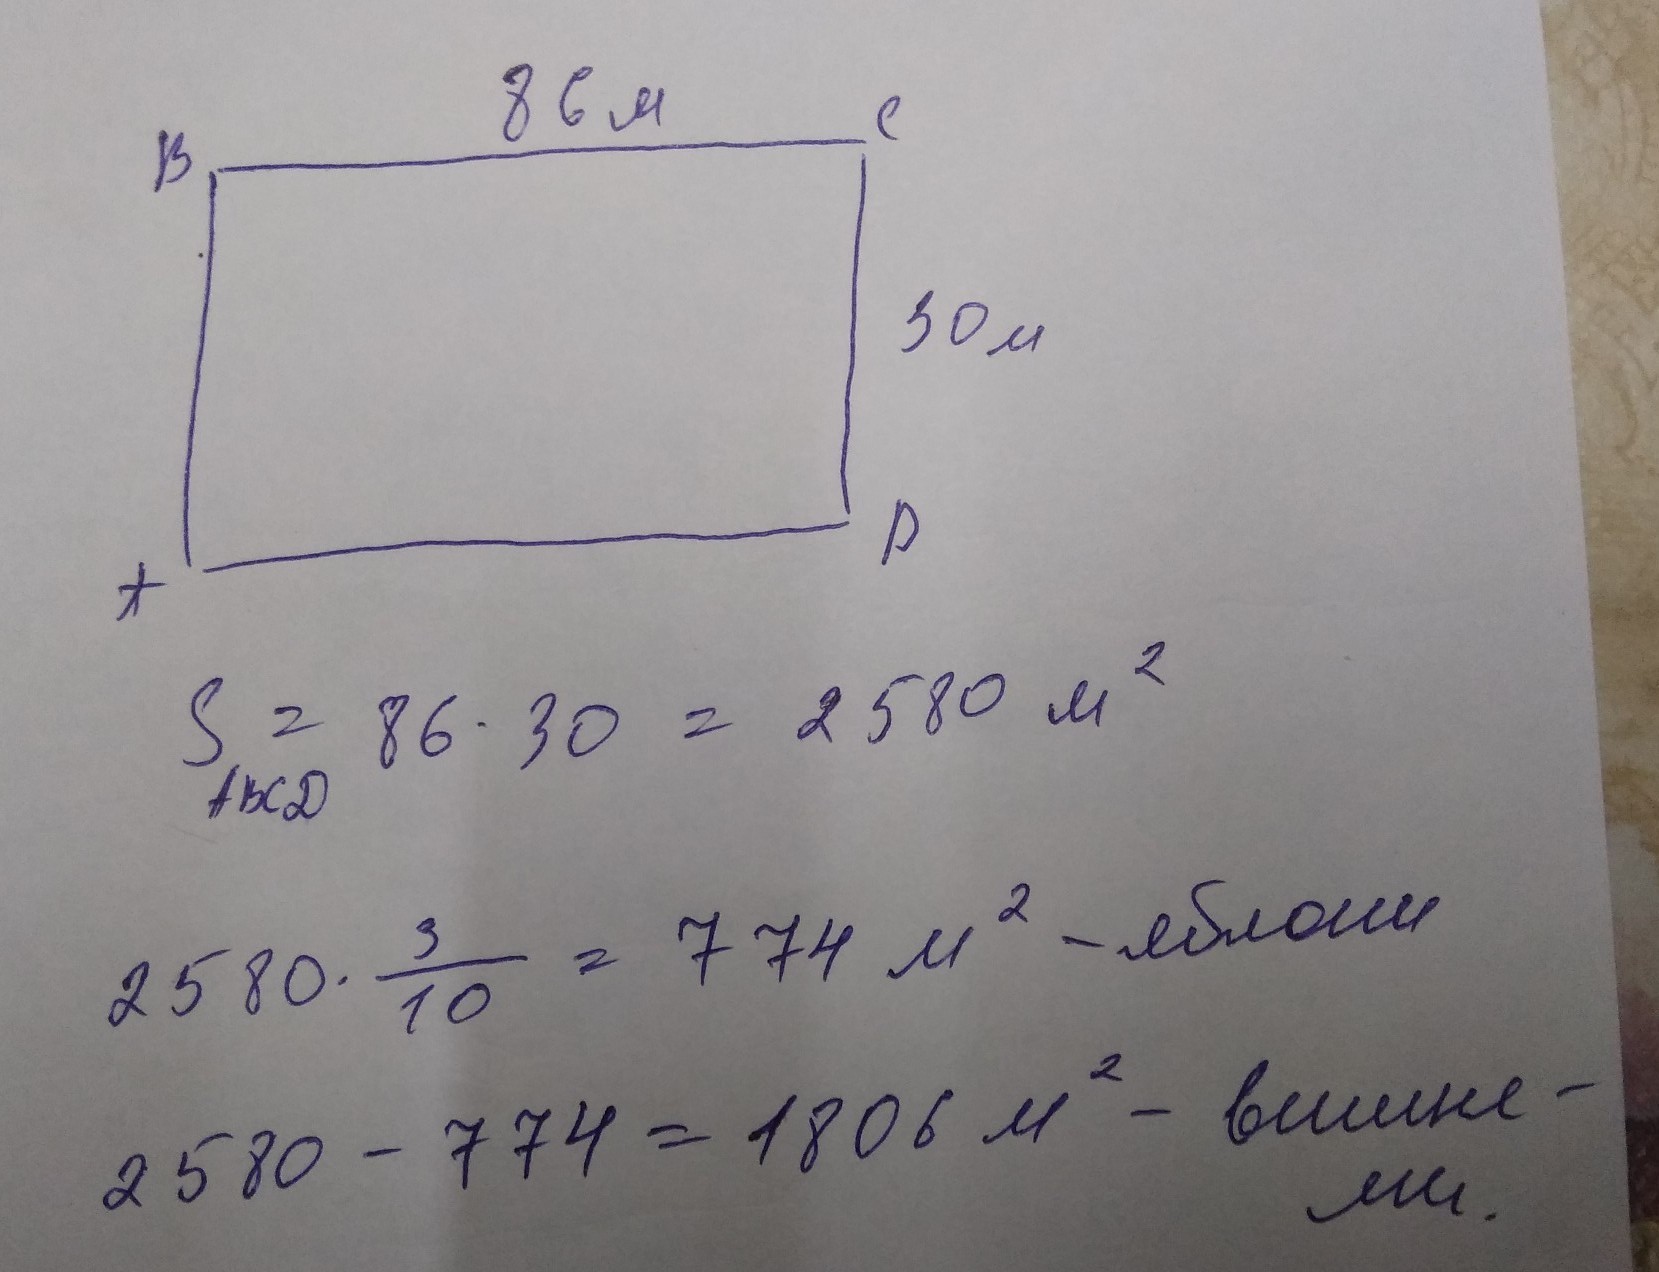 86 м
B C
30 м
A D
S ABCD = 86 · 30 = 2580 м²
2580 · 3/10 = 774 м² – яблони
2580 – 774 = 1806 м² – вишне-
ми.